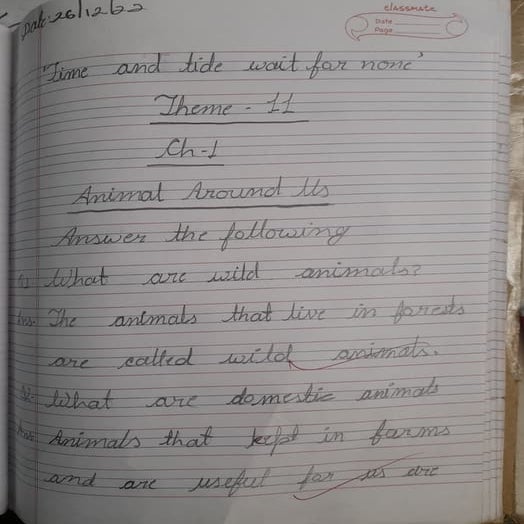 Date: 26/12/22
classmate
Date
Page
'Time and tide wait for none'
Theme - 11
Ch-1
Animal Around Us
Answer the following
What are wild animals?
Ans. The animals that live in forests
are called wild animals.
What are domestic animals
Ans. Animals that kept in farms
and are useful for us are